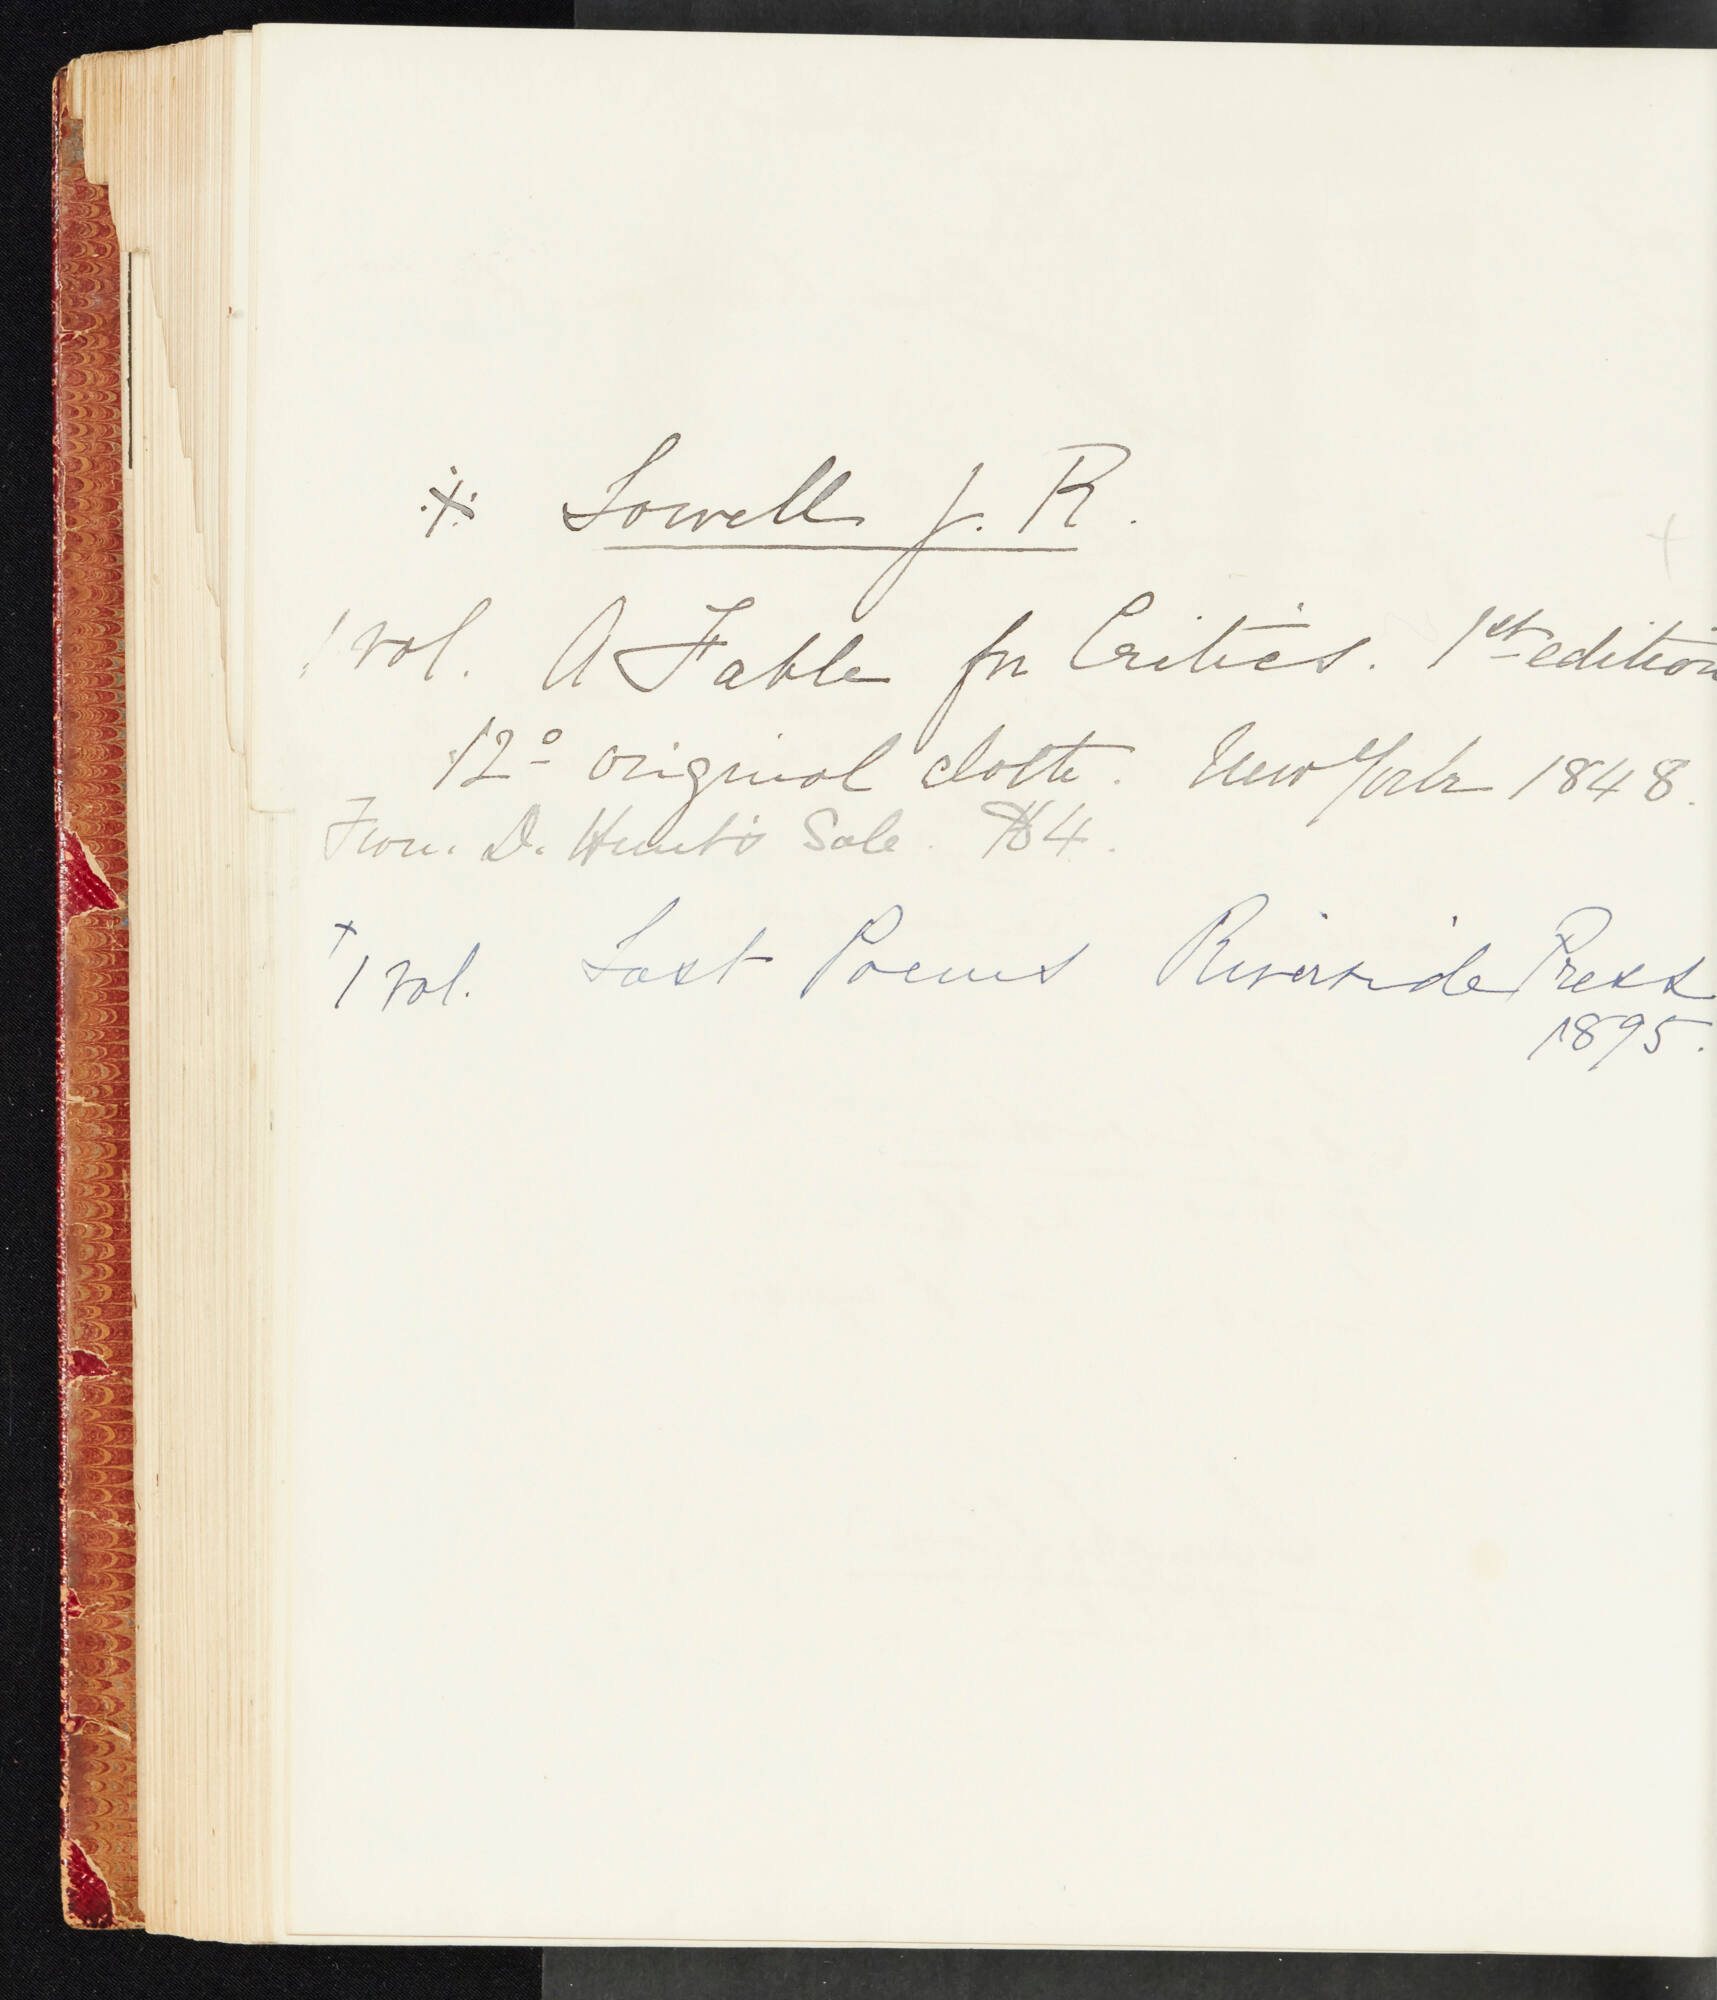 ※ Lowell J. R.
1 vol. A Fable for Critics. 1st edition
12º original cloth. New York 1848.
From D. Hunt's Sale. $4.
+
1 vol. Last Poems Riverside Press
1895.